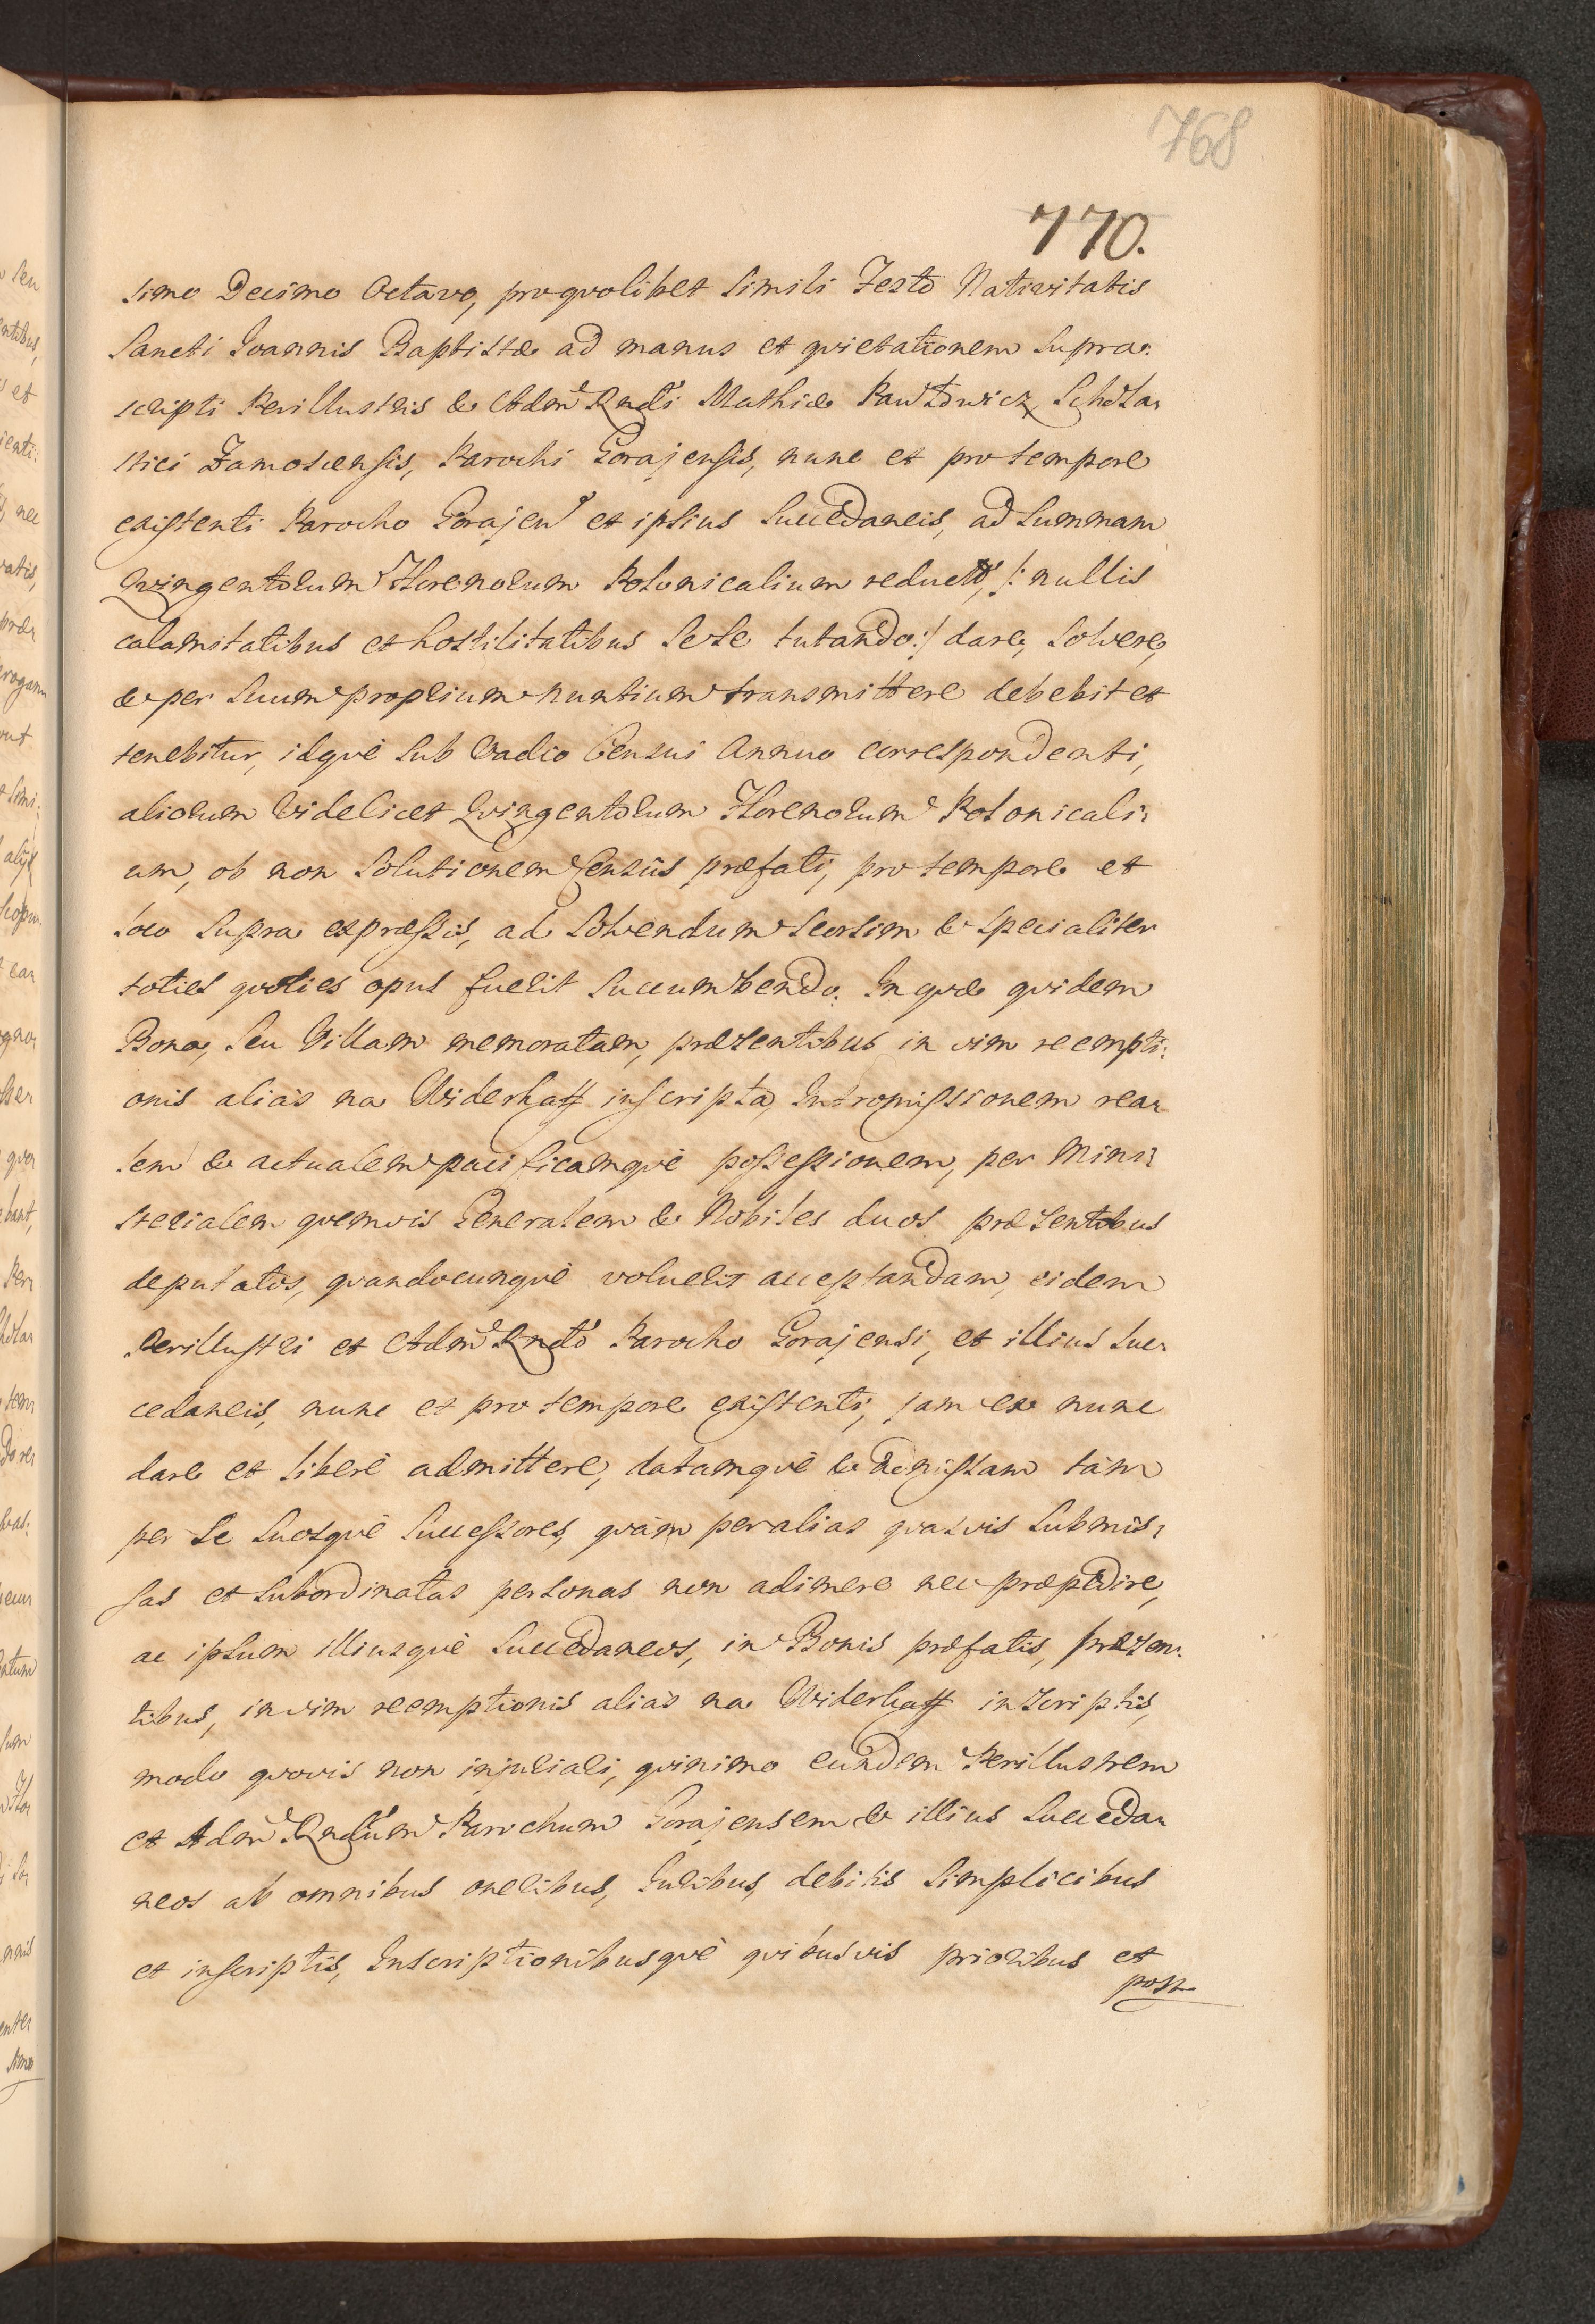 768
770.
simo Decimo Octavo, pro quolibet simili Festo Nativitatis
Sancti Joannis Baptistæ ad manus et quietationem supra:
scripti Perillustris & Adm Rndi Mathiæ Pawłowicz Schola:
stici Zamoscensis, Parochi Gorajensis, nunc et pro tempore
existenti Parocho Gorajen et ipsius succedaneis, ad summam
Quingentorum Florenorum Polonicalium reducto, /: nullis
calamitatibus et hostilitatibus sese tutando :/ dare, solvere,
& per suum proprium nuntium transmittere debebit et
tenebitur, idquè sub vadio Censui Annuo correspondenti,
aliorum videlicet Quingentorum Florenorum Polonicali:
um, ob non solutionem Censûs præfati, pro tempore et
loco supra expressis, ad solvendum seorsim & specialiter
toties quoties opus fuerit succumbendo. In quæ quidem
Bona, seu Villam memoratam, præsentibus in vim reempti:
onis aliàs na Widerkaff inscripta, Intromissionem rea:
lem & actualem pacificamquè possessionem, per Mini:
sterialem quemvis Generalem & Nobiles duos præsentibus
deputatos, quandocunquè voluerit acceptandam, eidem
Perillustri et Adm Rndo Parocho Gorajensi, et illius suc:
cedaneis, nunc et pro tempore existenti, jam ex nunc
dare et liberè admittere, datamquè & admissam tàm
per se suosquè successores, quàm per alias quasvis submis:
sas et subordinatas personas non adimere nec præpedire,
ac ipsum illiusquè succedaneos, in Bonis præfatis, præsen:
tibus, in vim reemptionis aliàs na Widerkaff inscriptis,
modo quovis non injuriari, quinimo eundem Perillustrem
et Adm Rndum Parochum Gorajensem & illius succeda:
neos ab omnibus oneribus, Juribus, debitis simplicibus
et inscriptis, Inscriptionibusquè quibusvis prioribus et
post